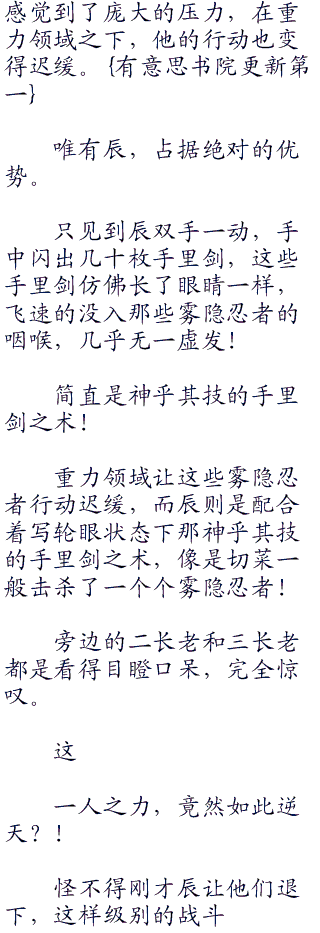 感觉到了庞大的压力，在重
力领域之下，他的行动也变
得迟缓。{有意思书院更新第
一}
唯有辰，占据绝对的优
势。
只见到辰双手一动，手
中闪出几十枚手里剑，这些
手里剑仿佛长了眼睛一样，
飞速的没入那些雾隐忍者的
咽喉，几乎无一虚发！
简直是神乎其技的手里
剑之术！
重力领域让这些雾隐忍
者行动迟缓，而辰则是配合
着写轮眼状态下那神乎其技
的手里剑之术，像是切菜一
般击杀了一个个雾隐忍者！
旁边的二长老和三长老
都是看得目瞪口呆，完全惊
叹。
这
一人之力，竟然如此逆
天？！
怪不得刚才辰让他们退
下，这样级别的战斗